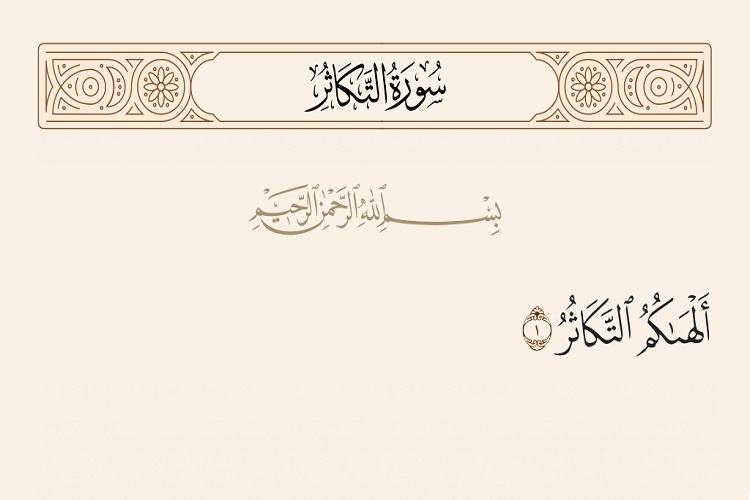 سُورَةُ التَّكَاثُرِ
بِسْمِ ٱللَّهِ ٱلرَّحْمَٰنِ ٱلرَّحِيمِ
أَلْهَىٰكُمُ ٱلتَّكَاثُرُ ١